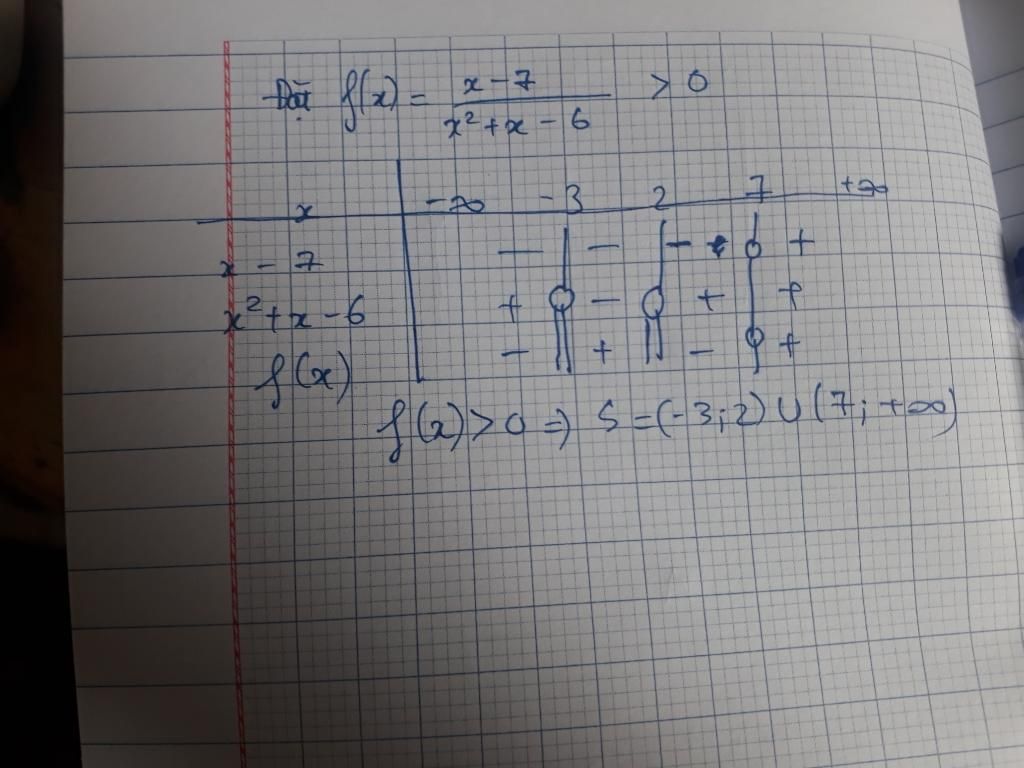 Đặt f(x) = x - 7 / x² + x - 6 > 0
x -∞ -3 2 7 +∞
x - 7 - - - +
x² + x - 6 + - + +
f(x) - + - +
f(x) > 0 => S = (-3; 2) U (7; +∞)